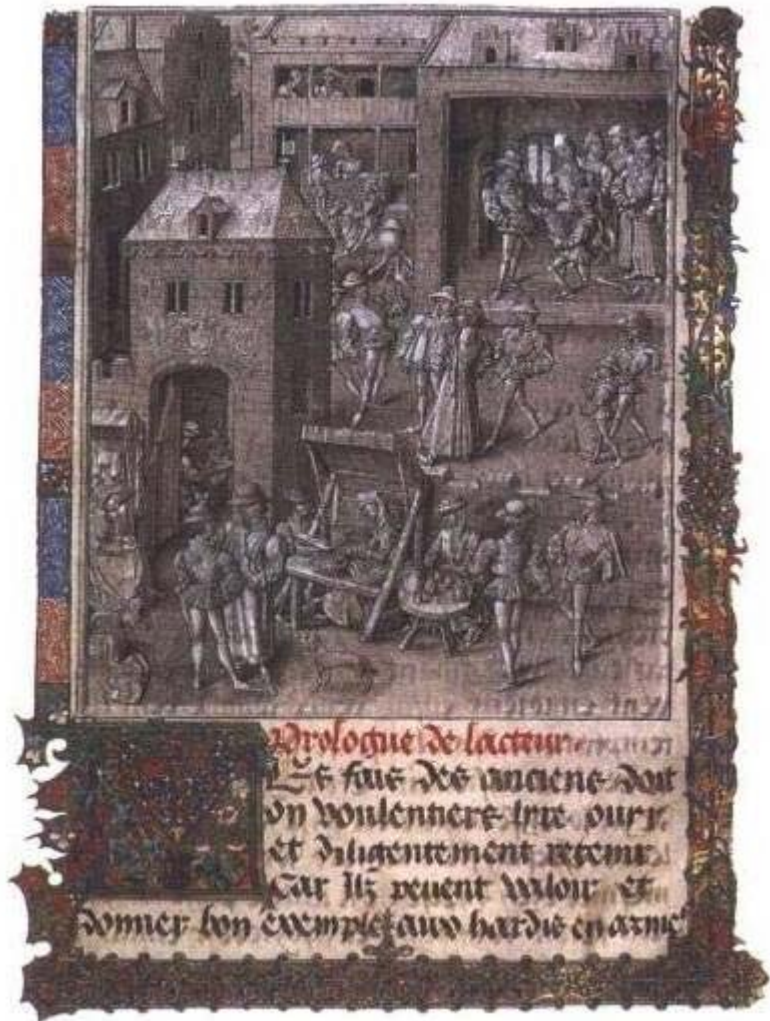 Prologue de lacteur
Les fais des anciens doit
on voulentiers lire ouyr
et diligentement retenir
Car Ilz peuent valoir et
donner bon exemple aux hardis en armes